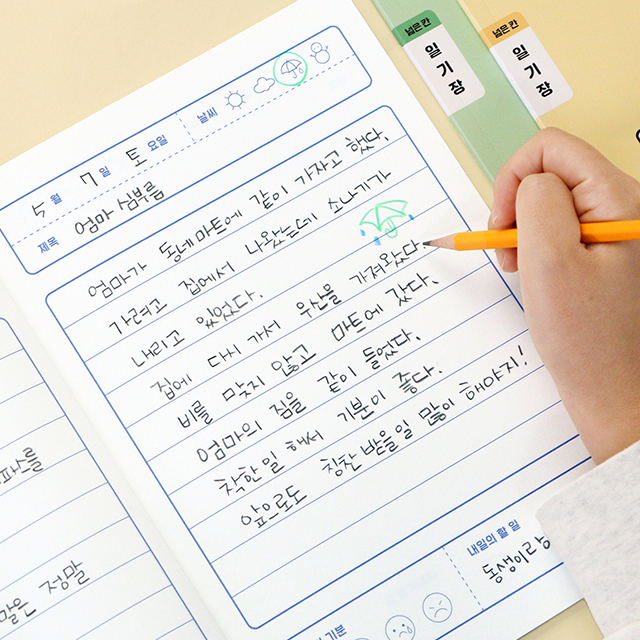 넓은 칸
일기장
넓은 칸
일기장
5월 7일 토요일 날씨
제목 엄마 심부름
엄마가 동네마트에 같이 가자고 했다.
가려고 집에서 나왔는데 소나기가
내리고 있었다.
집에 다시 가서 우산을 가져왔다.
비를 맞지 않고 마트에 갔다.
엄마의 짐을 같이 들었다.
착한일 해서 기분이 좋다.
앞으로도 칭찬 받을일 많이 해야지!
내일의 할 일
동생이랑
기분
정말